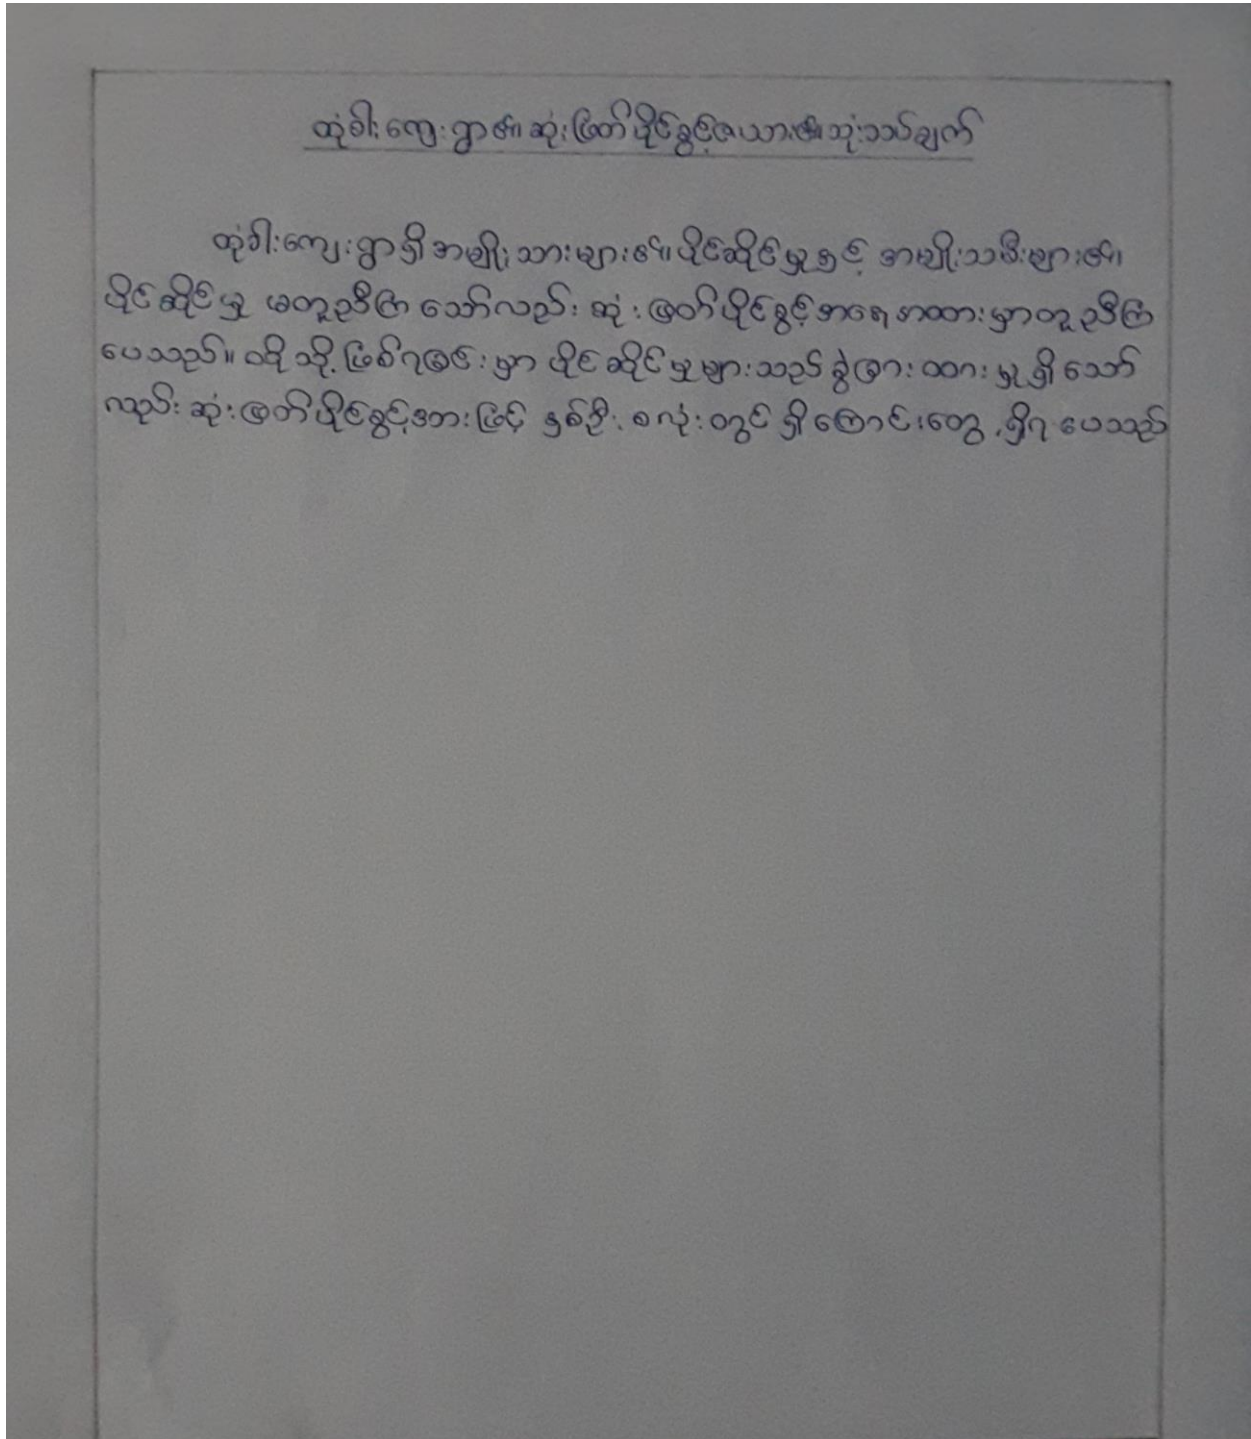 ထုံခါးကျေးရွာ၏ ဆုံးဖြတ်ပိုင်ခွင့်ဇယား၏သုံးသပ်ချက်
ထုံခါးကျေးရွာရှိ အမျိုးသားများ၏ ပိုင်ဆိုင်မှုနှင့် အမျိုးသမီးများ၏
ပိုင်ဆိုင်မှု မတူညီကြသော်လည်း ဆုံးဖြတ်ပိုင်ခွင့်အရေအထားမှာတူညီကြ
ပေသည်။ ထိုသို့ဖြစ်ရခြင်းမှာ ပိုင်ဆိုင်မှုများသည် ခွဲခြားထားမှုရှိသော်
လည်း ဆုံးဖြတ်ပိုင်ခွင့်အားဖြင့် နှစ်ဦးစလုံးတွင် ရှိကြောင်းတွေ့ရှိရပေသည်